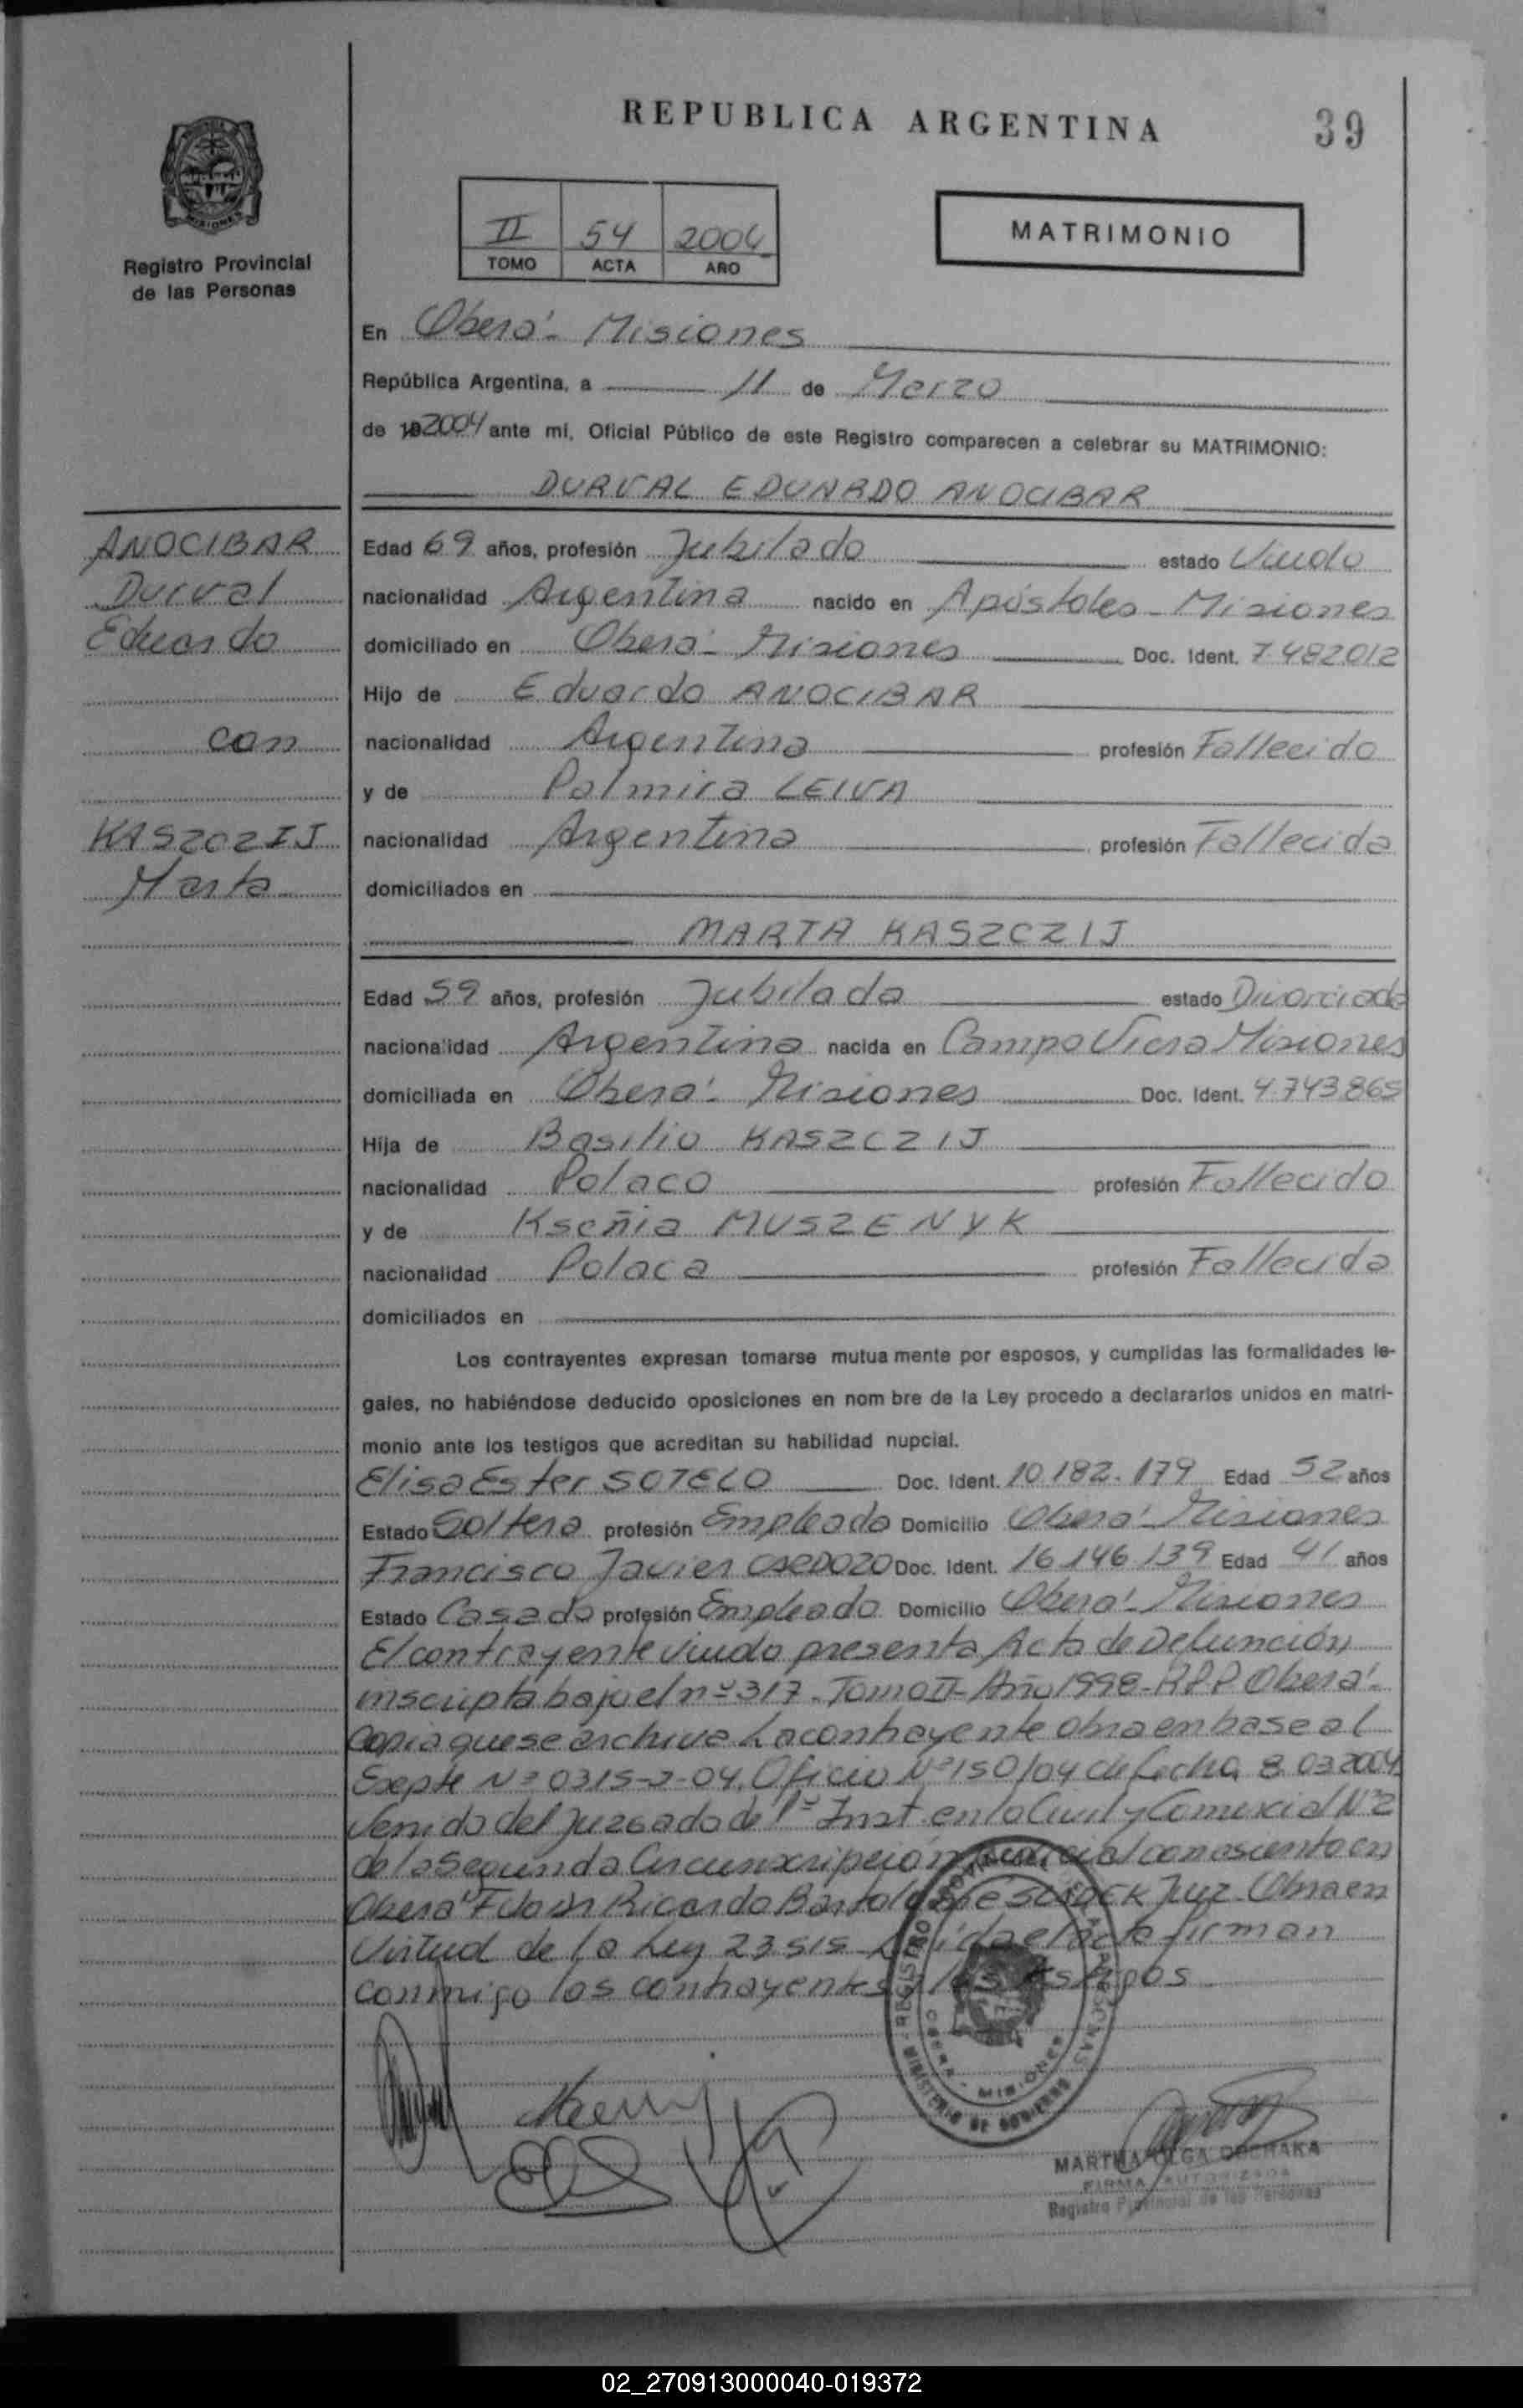 REPUBLICA ARGENTINA
39
Registro Provincial
de las Personas
II 54 2004
TOMO ACTA AÑO
MATRIMONIO
En Oberá - Misiones
República Argentina, a 11 de Marzo
de 192004 ante mi, Oficial Público de este Registro comparecen a celebrar su MATRIMONIO:
DURVAL EDUARDO ANOCIBAR
ANOCIBAR
Durval
Eduardo
con
KASZCZIJ
Marta
Edad 69 años, profesión Jubilado estado Viudo
nacionalidad Argentina nacido en Apóstoles - Misiones
domiciliado en Oberá - Misiones Doc. Ident. 7.482012
Hijo de Eduardo ANOCIBAR
nacionalidad Argentina profesión Fallecido
y de Palmira LEIVA
nacionalidad Argentina profesión Fallecida
domiciliados en
MARTA KASZCZIJ
Edad 59 años, profesión Jubilada estado Divorciada
nacionalidad Argentina nacida en Campo Viera Misiones
domiciliada en Oberá - Misiones Doc. Ident. 4.743.865
Hija de Basilio KASZCZIJ
nacionalidad Polaco profesión Fallecido
y de Kseñia MUSZENYK
nacionalidad Polaca profesión Fallecida
domiciliados en
Los contrayentes expresan tomarse mutua mente por esposos, y cumplidas las formalidades le-
gales, no habiéndose deducido oposiciones en nom bre de la Ley procedo a declararlos unidos en matri-
monio ante los testigos que acreditan su habilidad nupcial.
Elisa Ester SOTELO Doc. Ident. 10.182.179 Edad 52 años
Estado Soltera profesión Empleada Domicilio Oberá - Misiones
Francisco Javier CARDOZO Doc. Ident. 16.146.139 Edad 41 años
Estado Casado profesión Empleado Domicilio Oberá - Misiones
El contrayente viudo presenta Acta de Defunción
inscripta bajo el nº 317. Tomo II - Año 1998 - RPP Oberá -
Copia que se archiva La contrayente obra en base al
Expte Nº 0315-2-04. Oficio Nº 150/04 de fecha 8.03.2004
Venido del Juzgado de 1º Inst. en lo Civil y Comercial Nº 2
de la Segunda Circunscripción Judicial con asiento en
Oberá Fdo Dr Ricardo Juez. Obra en
Virtud de la Ley 23.515 Leída el acta firman
conmigo los contrayentes y los testigos
REGISTRO PERSONAS
OBERA - MISIONES
MINISTERIO DE GOBIERNO
MARTHA OLGA
FIRMA AUTORIZADA
Registro Provincial de las Personas
02_270913000040-019372